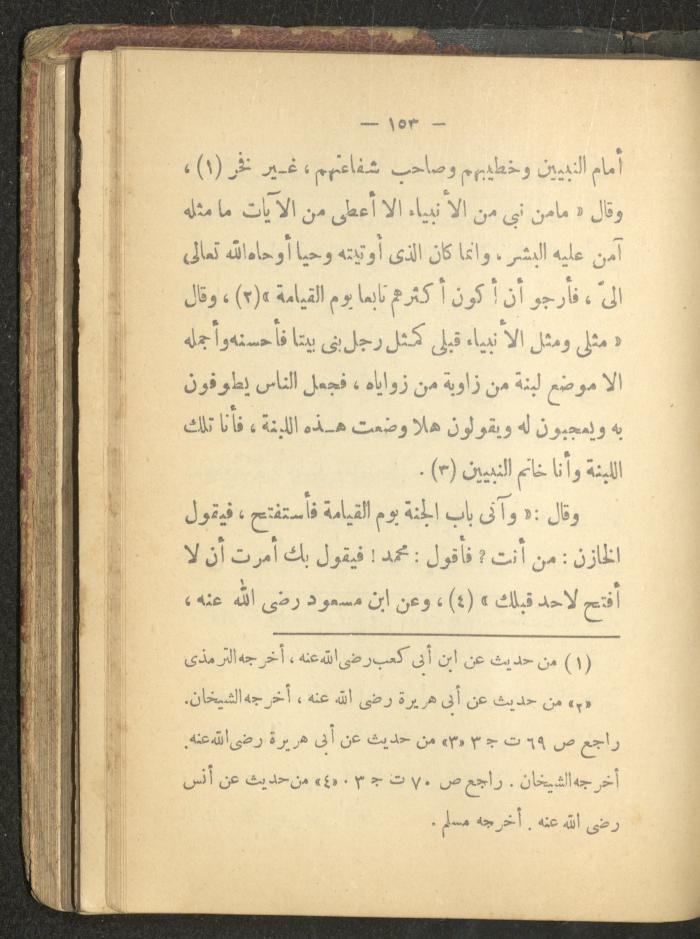 — ١٥٣ —
أمام النبيين وخطيبهم وصاحب شفاعتهم ، غير فخر (١) ،
وقال « مامن نبي من الأنبياء الا أعطى من الآيات ما مثله
آمن عليه البشر ، وانما كان الذى أوتيته وحيا أوحاه الله تعالى
الىّ ، فأرجو أن أكون أكثرهم تابعا يوم القيامة »(٢) ، وقال
« مثلى ومثل الأنبياء قبلى كمثل رجل بنى بيتا فأحسنه وأجمله
الا موضع لبنة من زاوية من زواياه ، فجعل الناس يطوفون
به ويعجبون له ويقولون هلا وضعت هذه اللبنة ، فأنا تلك
اللبنة وأنا خاتم النبيين (٣) .
وقال :« وآتى باب الجنة يوم القيامة فأستفتح ، فيقول
الخازن : من أنت ? فأقول : محمد ! فيقول بك أمرت أن لا
أفتح لاحد قبلك » (٤) ، وعن ابن مسعود رضى الله عنه ،
(١) من حديث عن ابن أبى كعب رضى الله عنه ، أخرجه الترمذى
«٢» من حديث عن أبى هريرة رضى الله عنه ، أخرجه الشيخان.
راجع ص ٦٩ ت ج ٣ «٣» من حديث عن أبى هريرة رضى الله عنه.
أخرجه الشيخان . راجع ص ٧٠ ت ج ٣ . «٤» من حديث عن أنس
رضى الله عنه . أخرجه مسلم .